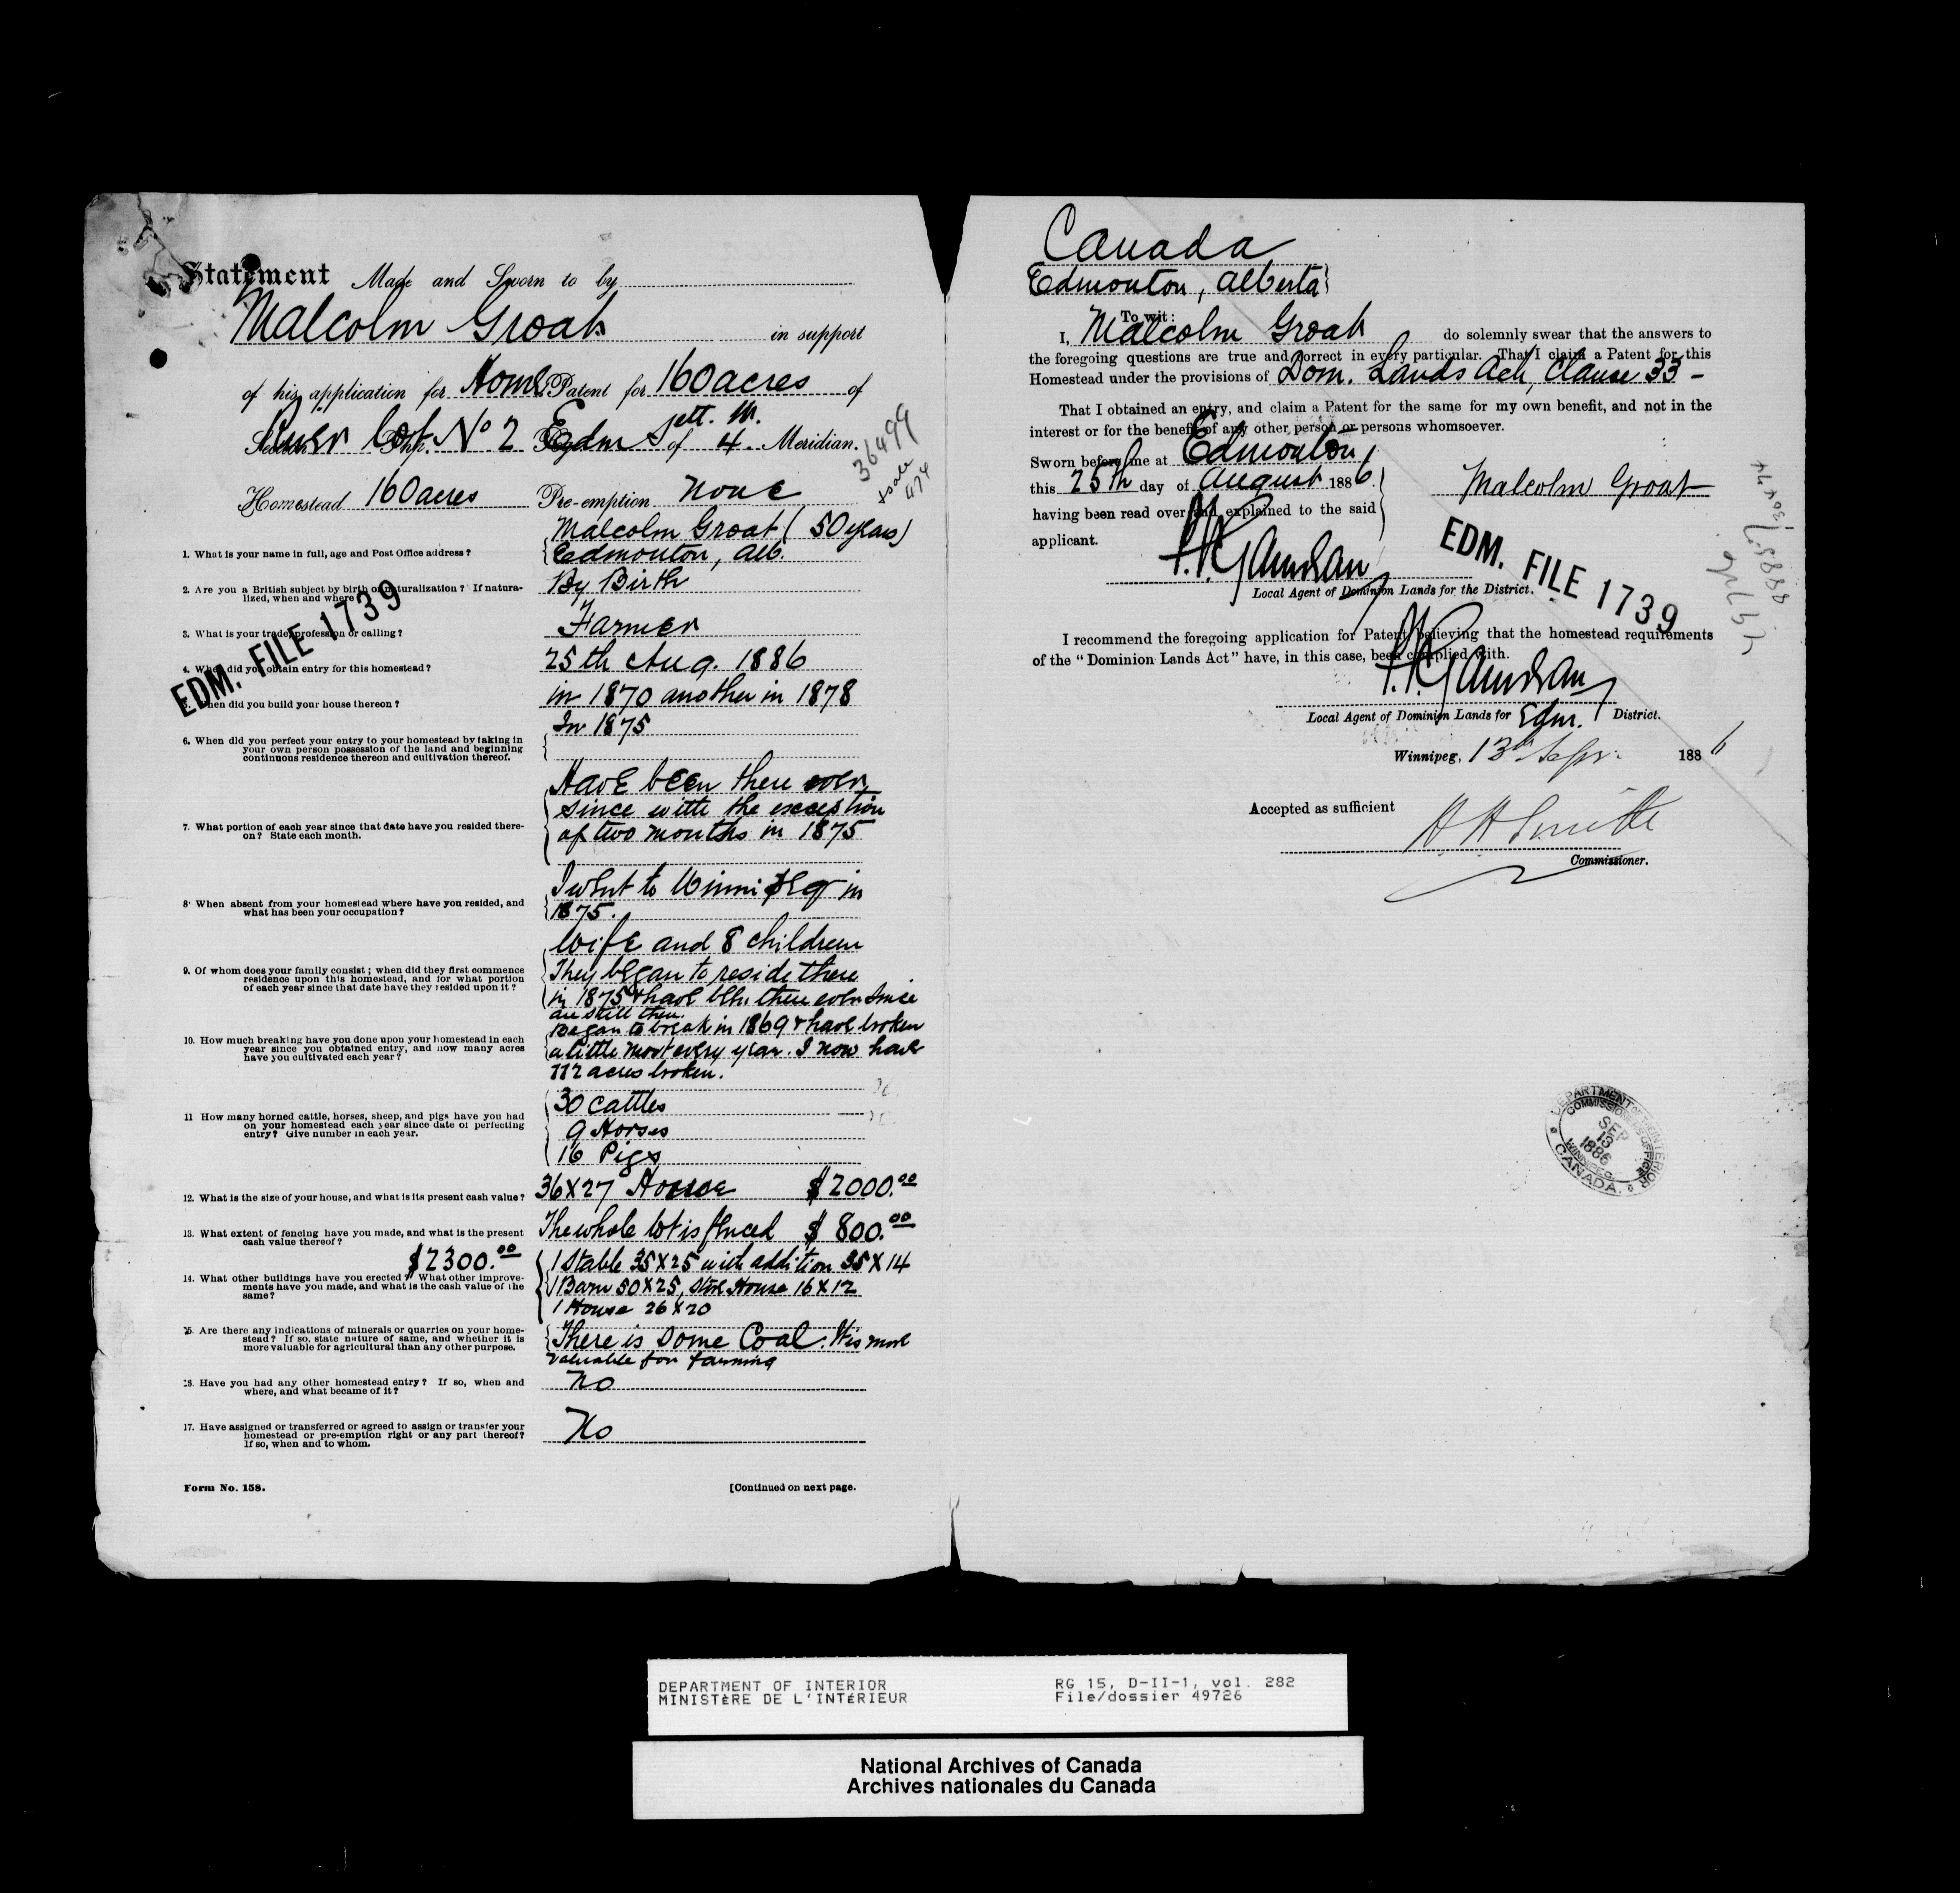 Statement Made and Sworn to by
Malcolm Groat in support
of his application for Home. Patent for 160 acres of
River Lot No 2 Edm Sett. W. of 4 Meridian.
36499
474
Homestead 160 acres Pre-emption None
1. What is your name in full, age and Post Office address?
Malcolm Groat (50 years)
Edmonton, Alb.
2. Are you a British subject by birth or naturalization? If natura-
lized, when and where?
By Birth
3. What is your trade, profession or calling?
Farmer
EDM. FILE 1739
4. When did you obtain entry for this homestead?
25th Aug. 1886
5. When did you build your house thereon?
in 1870 another in 1878
6. When did you perfect your entry to your homestead by taking in
your own person possession of the land and beginning
continuous residence thereon and cultivation thereof.
In 1875
7. What portion of each year since that date have you resided there-
on? State each month.
Have been there ever
since with the exception
of two months in 1875
8. When absent from your homestead where have you resided, and
what has been your occupation?
I went to Winnipeg in
1875.
9. Of whom does your family consist; when did they first commence
residence upon this homestead, and for what portion
of each year since that date have they resided upon it?
Wife and 8 children
They began to reside there
in 1875 & have been there ever since
are still there.
10. How much breaking have you done upon your homestead in each
year since you obtained entry, and how many acres
have you cultivated each year?
Began to break in 1869 & have broken
a little most every year. I now have
112 acres broken.
11 How many horned cattle, horses, sheep, and pigs have you had
on your homestead each year since date of perfecting
entry? Give number in each year.
30 Cattles
9 Horses
16 Pigs
12. What is the size of your house, and what is its present cash value?
36X27 House $2000.00
13. What extent of fencing have you made, and what is the present
cash value thereof?
The whole lot is fenced $800.00
$2300.00
14. What other buildings have you erected? What other improve-
ments have you made, and what is the cash value of the
same?
1 Stable 35X25 with addition 35X14
1 Barn 50X25, Store House 16X12
1 House 26X20
15. Are there any indications of minerals or quarries on your home-
stead? If so, state nature of same, and whether it is
more valuable for agricultural than any other purpose.
There is some Coal. It is more
valuable for farming
16. Have you had any other homestead entry? If so, when and
where, and what became of it?
No
17. Have assigned or transferred or agreed to assign or transfer your
homestead or pre-emption right or any part thereof?
If so, when and to whom.
No
Form No. 158.
[Continued on next page.
Canada
Edmonton, Alberta
To wit:
I, Malcolm Groat do solemnly swear that the answers to
the foregoing questions are true and correct in every particular. That I claim a Patent for this
Homestead under the provisions of Dom. Lands Act, Clause 33 -
That I obtained an entry, and claim a Patent for the same for my own benefit, and not in the
interest or for the benefit of any other person or persons whomsoever.
Sworn before me at Edmonton,
this 25th day of August 1886
having been read over and explained to the said
applicant.
Malcolm Groat
Local Agent of Dominion Lands for the District.
EDM. FILE 1739
I recommend the foregoing application for Patent, believing that the homestead requirements
of the "Dominion Lands Act" have, in this case, been complied with.
Local Agent of Dominion Lands for Edm. District.
Winnipeg, 13th Sepr. 1886
Accepted as sufficient
H H Smith
Commissioner.
DEPARTMENT OF THE INTERIOR
COMMISSIONER'S OFFICE
SEP
13
1886
WINNIPEG
CANADA.
DEPARTMENT OF INTERIOR
MINISTÈRE DE L'INTÉRIEUR
RG 15, D-II-1, vol. 282
File/dossier 49726
National Archives of Canada
Archives nationales du Canada